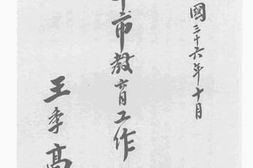 國三十六年十月
市教育工作
王季高